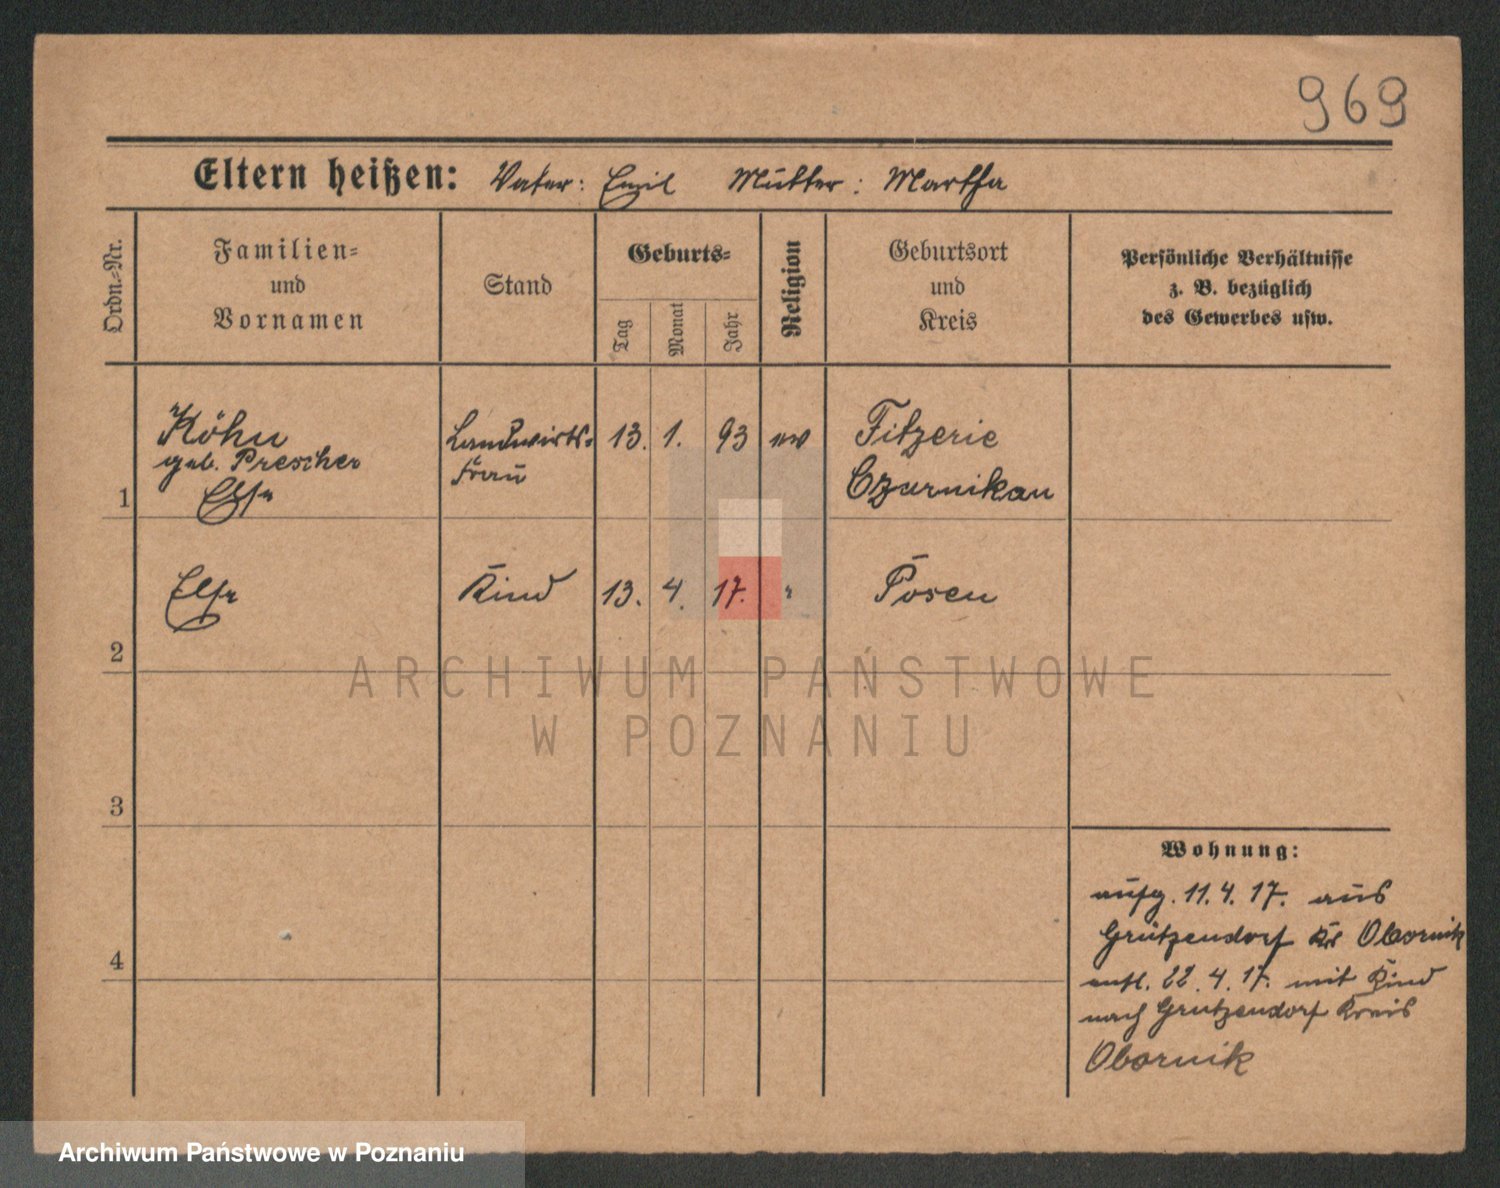 969
Eltern heißen: Vater: Emil Mutter: Martha
Ordn.-Nr.
Familien-
und
Vornamen
Stand
Geburts-
Tag
Monat
Jahr
Religion
Geburtsort
und
Kreis
Persönliche Verhältnisse
z. B. bezüglich
des Gewerbes usw.
1
Köhn
geb. Prescher
Else
Landwirts-
Frau
13. 1. 93 ev
Fitzerie
Czarnikau
2
Else
Kind
13. 4. 17. "
Posen
3
4
Wohnung:
aufg. 11.4.17. aus
Grützendorf Kr Obornik
entl. 22.4.17. mit Kind
nach Grützendorf Kreis
Obornik
ARCHIWUM PAŃSTWOWE
W POZNANIU
Archiwum Państwowe w Poznaniu